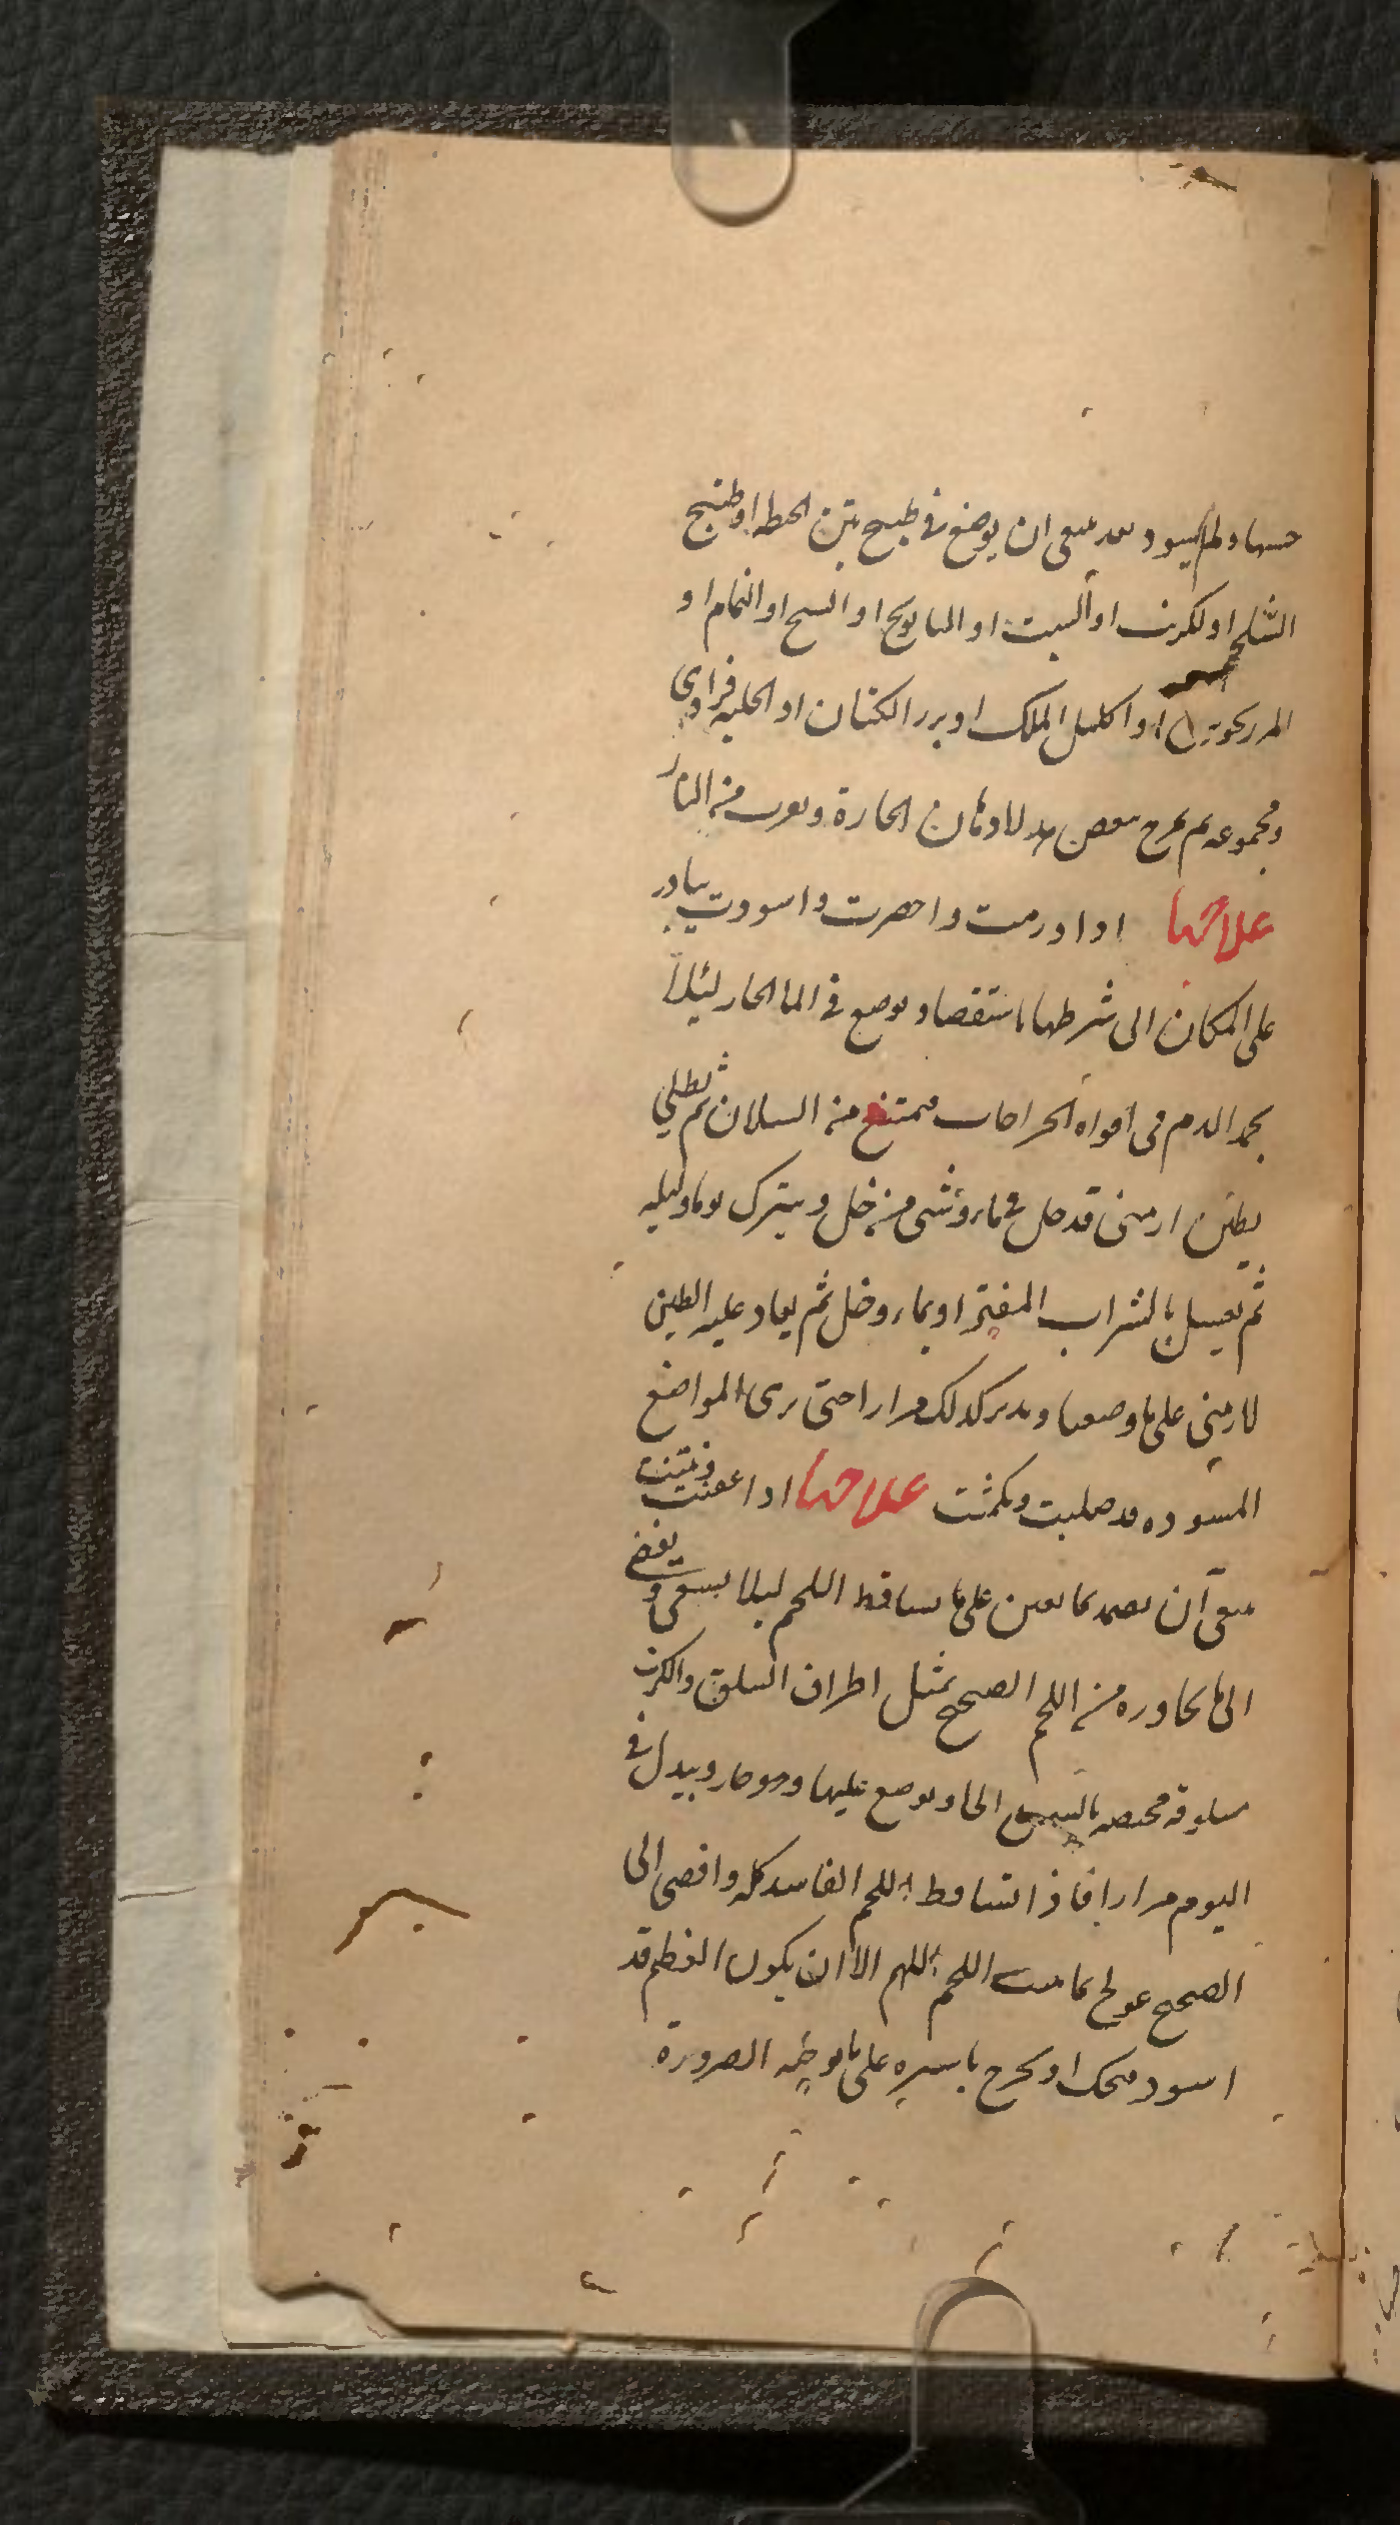 حسها ولم يسود بعد ينبغى ان يوضع فى طبيخ تبن الحنطه او طبيخ
الشلجم او لكرنب او الشبت او البابونج او الشيح او النمام او
المرزنجوش او اكليل الملك او بزر الكتان او الحلبه فرادى
ومجموعه ثم تمرخ ببعض هذه الادهان الحارة وتقرب من النار
علاجها اذا ورمت واخضرت واسودت يبادر
على المكان الى شرطها باستقصا ويوضع فى الما الحار ليئلا
يجمد الدم فى افواه الجراحات فيمتنع من السيلان ثم تطلى
بطين ارمنى قد حل فى ماء وشى من خل ويترك يوما وليله
ثم يغسل بالشراب المفتر او بماء وخل ثم يعاد عليه الطين
لارمنى على ما وصفنا ويدبر كذلك مرارا حتى يرى المواضع
المسوده قد صلبت وتكمشت علاجها اذا عفنت ونتنت
ينبغى ان يضمد بما يعين على ما يساقط اللحم ليلا يسعى ويفضى
الى ما يجاوره من اللحم الصحيح بمثل اطراف السلق والكرنب
مسلوقه مخبصه بالسمن الحا ويوضع عليها وهو حار ويبدل فى
اليوم مرارا فاذا تساقط اللحم الفاسد كله وافضى الى
الصحيح عولج بما ينبت اللحم اللهم الا ان يكون العظم قد
اسود فيحك او يخرج باسره على ما توجبه الضرورة